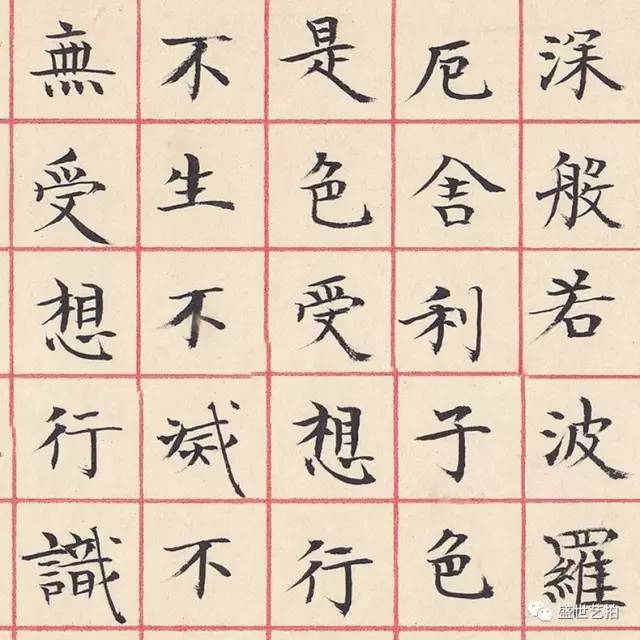 深般若波羅
厄舍利子色
是色受想行
不生不滅不
無受想行識
盛世艺拍